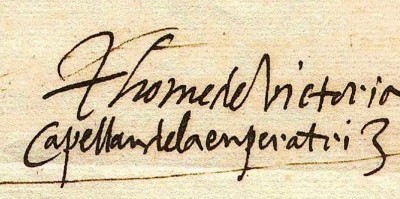 Thome de Victoria
Capellan de la enperatriz